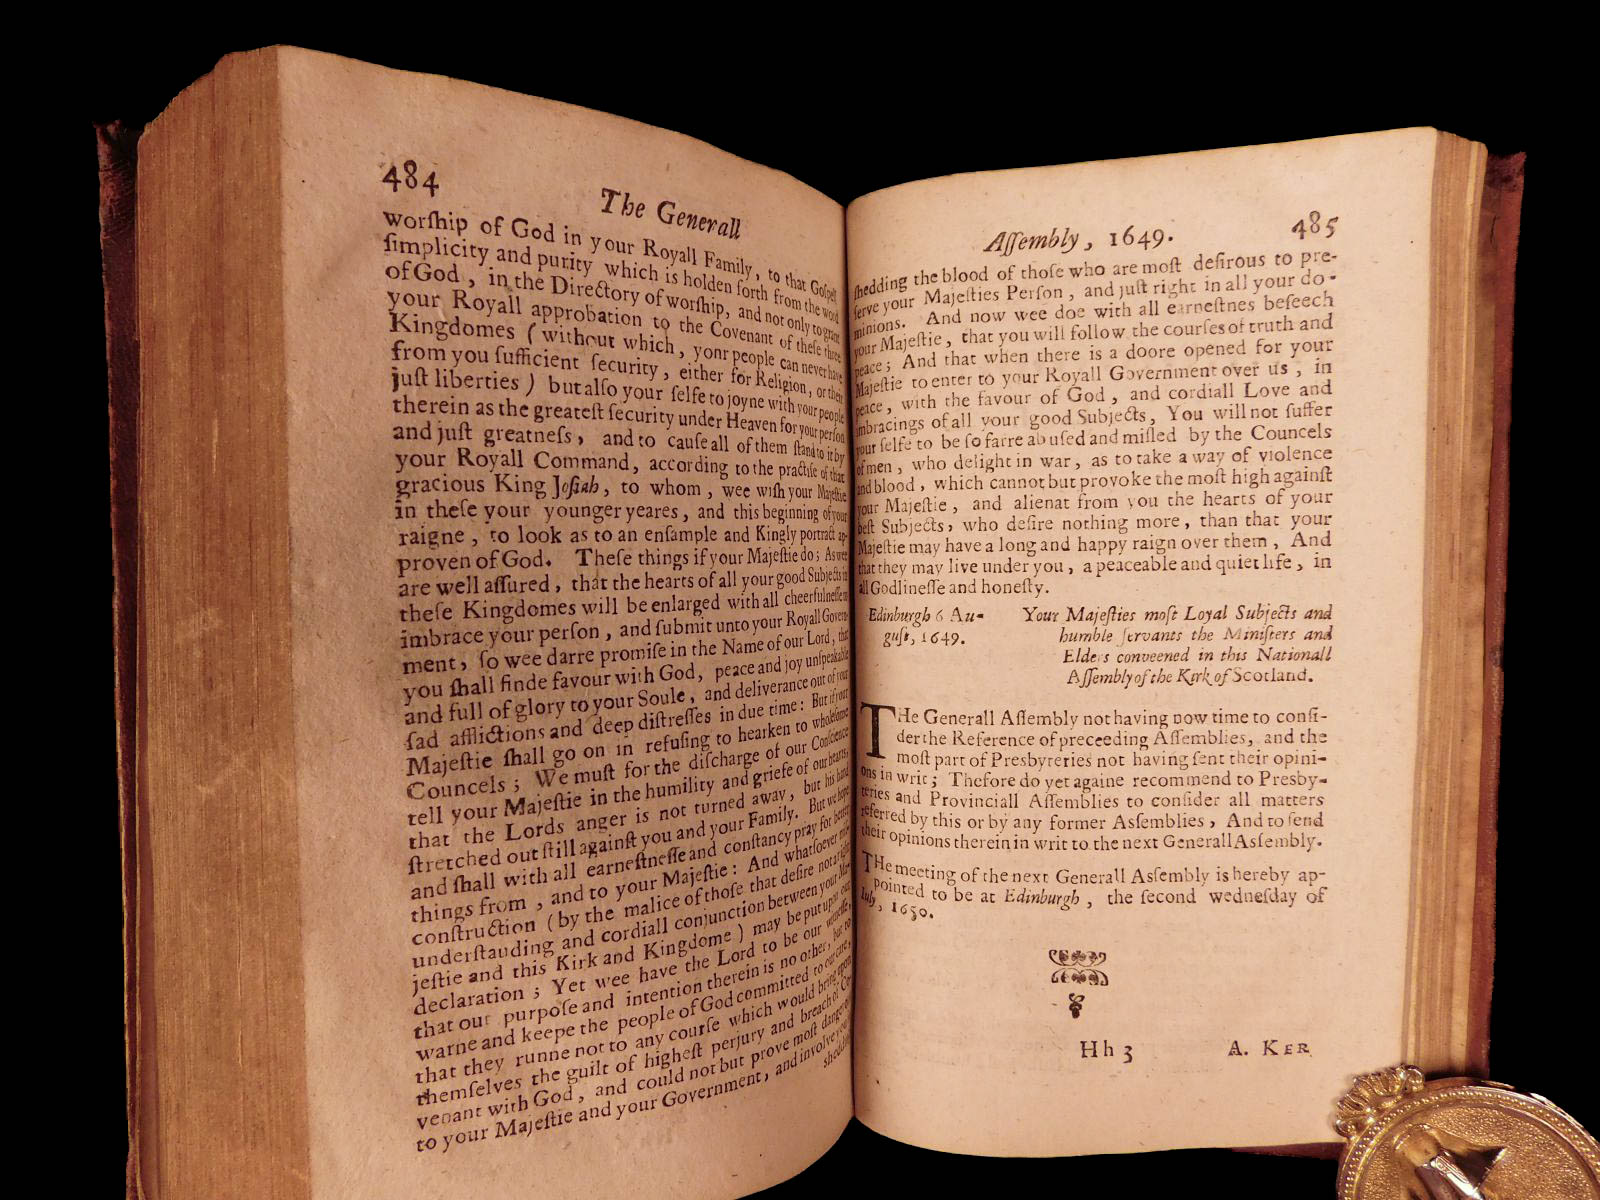 484
The Generall
worſhip of God in your Royall Family, to that Goſpell
ſimplicity and purity which is holden forth from the word
of God, in the Directory of worſhip, and not only to grant
your Royall approbation to the Covenant of theſe three
Kingdomes (without which, yonr people can never have
from you ſufficient ſecurity, either for Religion, or their
juſt liberties) but alſo your ſelfe to joyne with your people
therein as the greateſt ſecurity under Heaven for your perſon
and juſt greatneſs, and to cauſe all of them ſtand to it by
your Royall Command, according to the practiſe of that
gracious King Joſiah, to whom, wee wiſh your Majeſtie
in theſe your younger yeares, and this beginning of your
raigne, to look as to an enſample and Kingly portract ap-
proven of God. Theſe things if your Majeſtie do; As wee
are well aſſured, that the hearts of all your good Subjects in
theſe Kingdomes will be enlarged with all cheerfulneſſe to
imbrace your perſon, and ſubmit unto your Royall Govern-
ment, ſo wee darre promiſe in the Name of our Lord, that
you ſhall finde favour with God, peace and joy unſpeakable
and full of glory to your Soule, and deliverance out of your
ſad afflictions and deep diſtreſſes in due time: But if your
Majeſtie ſhall go on in refuſing to hearken to wholeſome
Councels; We muſt for the diſcharge of our Conſcience
tell your Majeſtie in the humility and griefe of our hearts,
that the Lords anger is not turned away, but his hand
ſtretched out ſtill againſt you and your Family. But we hope
and ſhall with all earneſtneſſe and conſtancy pray for better
things from, and to your Majeſtie: And whatſoever
conſtruction (by the malice of thoſe that deſire not a right
underſtanding and cordiall conjunction between your Ma-
jeſtie and this Kirk and Kingdome) may be put upon our
declaration; Yet wee have the Lord to be our witneſſe,
that our purpoſe and intention therein is no other, but to
warne and keepe the people of God committed to our care,
that they runne not to any courſe which would bring upon
themſelves the guilt of higheſt perjury and breach of Co-
venant with God, and could not but prove moſt dangerous
to your Majeſtie and your Government, and involve you in
ſhedding
Aſſembly, 1649.
485
ſhedding the blood of thoſe who are moſt deſirous to pre-
ſerve your Majeſties Perſon, and juſt right in all your do-
minions. And now wee doe with all earneſtnes beſeech
your Majeſtie, that you will follow the courſes of truth and
peace; And that when there is a doore opened for your
Majeſtie to enter to your Royall Government over us, in
peace, with the favour of God, and cordiall Love and
imbracings of all your good Subjects, You will not ſuffer
your ſelfe to be ſo farre abuſed and miſled by the Councels
of men, who delight in war, as to take a way of violence
and blood, which cannot but provoke the moſt high againſt
your Majeſtie, and alienat from you the hearts of your
beſt Subjects, who deſire nothing more, than that your
Majeſtie may have a long and happy raign over them, And
that they may live under you, a peaceable and quiet life, in
all Godlineſſe and honeſty.
Edinburgh 6 Au-
guſt, 1649.
Your Majeſties moſt Loyal Subjects and
humble ſervants the Miniſters and
Elders conveened in this Nationall
Aſſembly of the Kirk of Scotland.
THe Generall Aſſembly not having now time to conſi-
der the Reference of preceeding Aſſemblies, and the
moſt part of Presbyteries not having ſent their opini-
ons in writ; Thefore do yet againe recommend to Presby-
teries and Provinciall Aſſemblies to conſider all matters
referred by this or by any former Aſſemblies, And to ſend
their opinions therein in writ to the next Generall Aſſembly.
THe meeting of the next Generall Aſſembly is hereby ap-
pointed to be at Edinburgh, the ſecond wedneſday of
July, 1650.
Hh3
A. KER